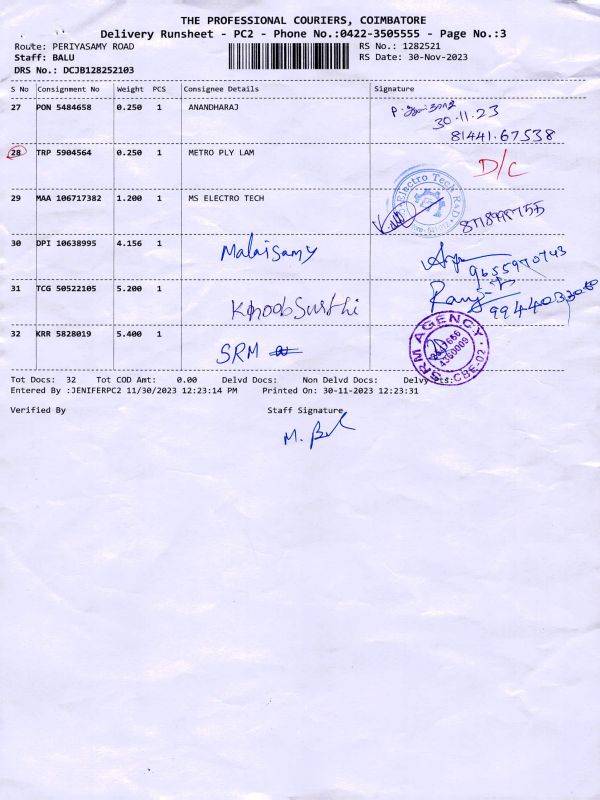 THE PROFESSIONAL COURIERS, COIMBATORE
Delivery Runsheet - PC2 - Phone No.:0422-3505555 - Page No.:3
Route: PERIYASAMY ROAD RS No.: 1282521
Staff: BALU RS Date: 30-Nov-2023
DRS No.: DCJB128252103
S No Consignment No Weight PCS Consignee Details Signature
27 PON 5484658 0.250 1 ANANDHARAJ
30-11-23
81441.67538
28 TRP 5904564 0.250 1 METRO PLY LAM D/C
29 MAA 106717382 1.200 1 MS ELECTRO TECH Electro Tech R&D
30 DPI 10638995 4.156 1 Malaisamy
9655970743
31 TCG 50522105 5.200 1 Khoobsurthi
32 KRR 5828019 5.400 1 SRM SRM AGENCY CBE-02
Tot Docs: 32 Tot COD Amt: 0.00 Delvd Docs: Non Delvd Docs: Delvy Pts:
Entered By :JENIFERPC2 11/30/2023 12:23:14 PM Printed On: 30-11-2023 12:23:31
Verified By Staff Signature